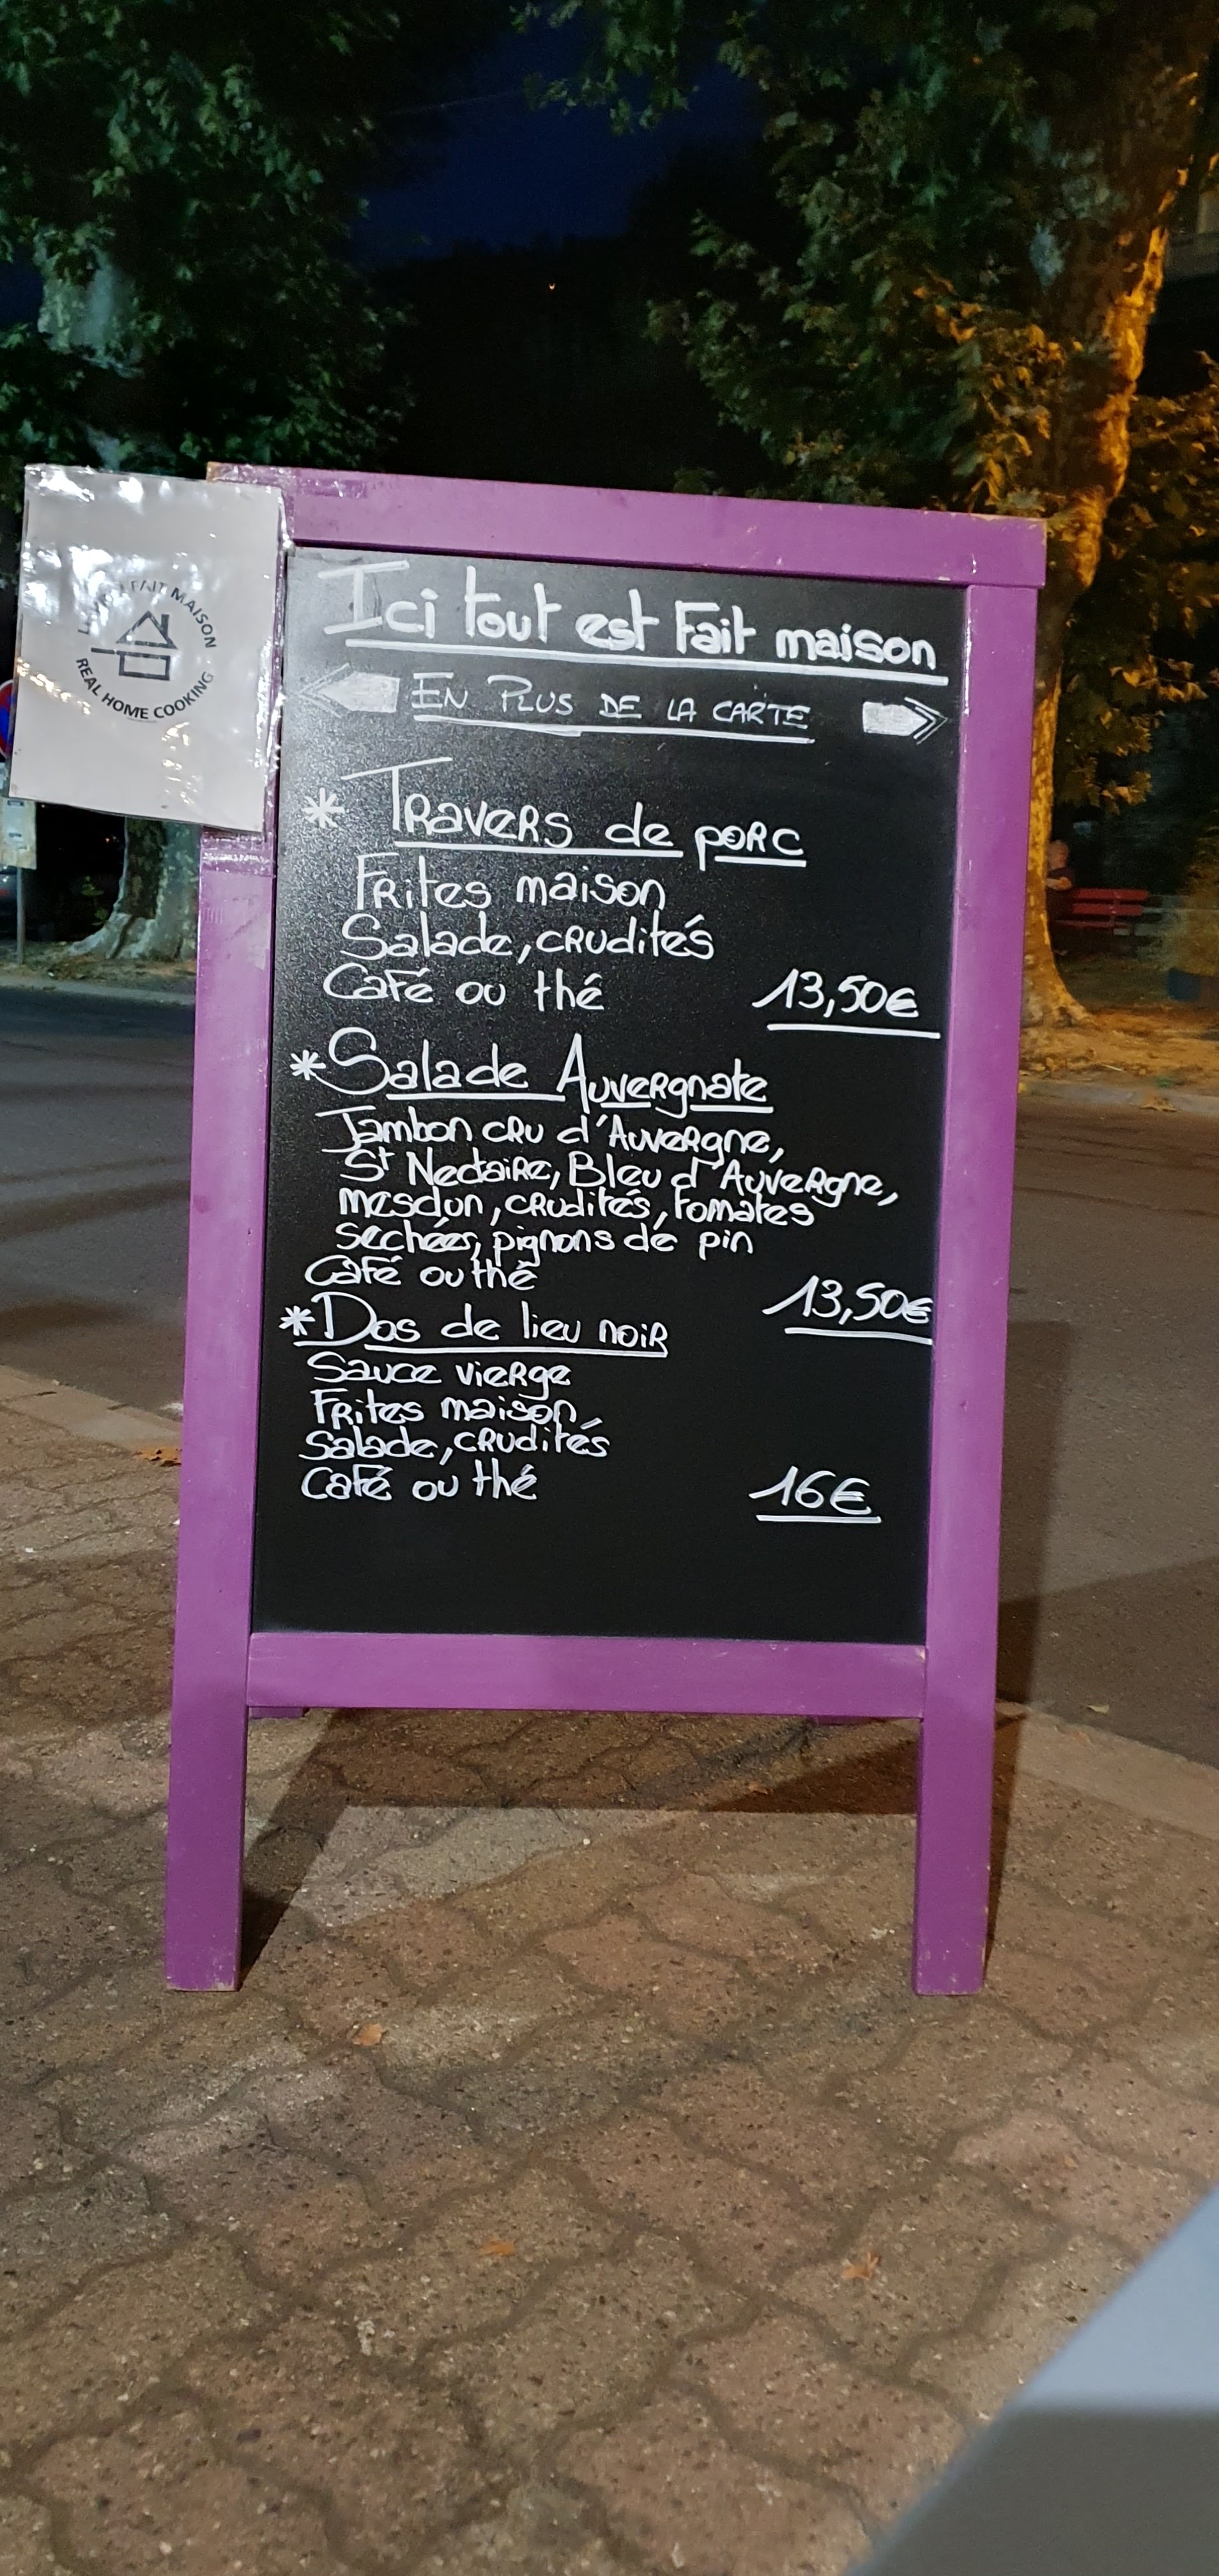 FAIT MAISON
REAL HOME COOKING
Ici tout est Fait maison
EN PLUS DE LA CARTE
* Travers de porc
Frites maison
Salade, crudités
Café ou thé 13,50€
* Salade Auvergnate
Jambon cru d'Auvergne,
St Nectaire, Bleu d'Auvergne,
mesclun, crudités, tomates
sechées, pignons de pin
Café ou thé 13,50€
* Dos de lieu noir
Sauce vierge
Frites maison,
Salade, crudités
Café ou thé 16€